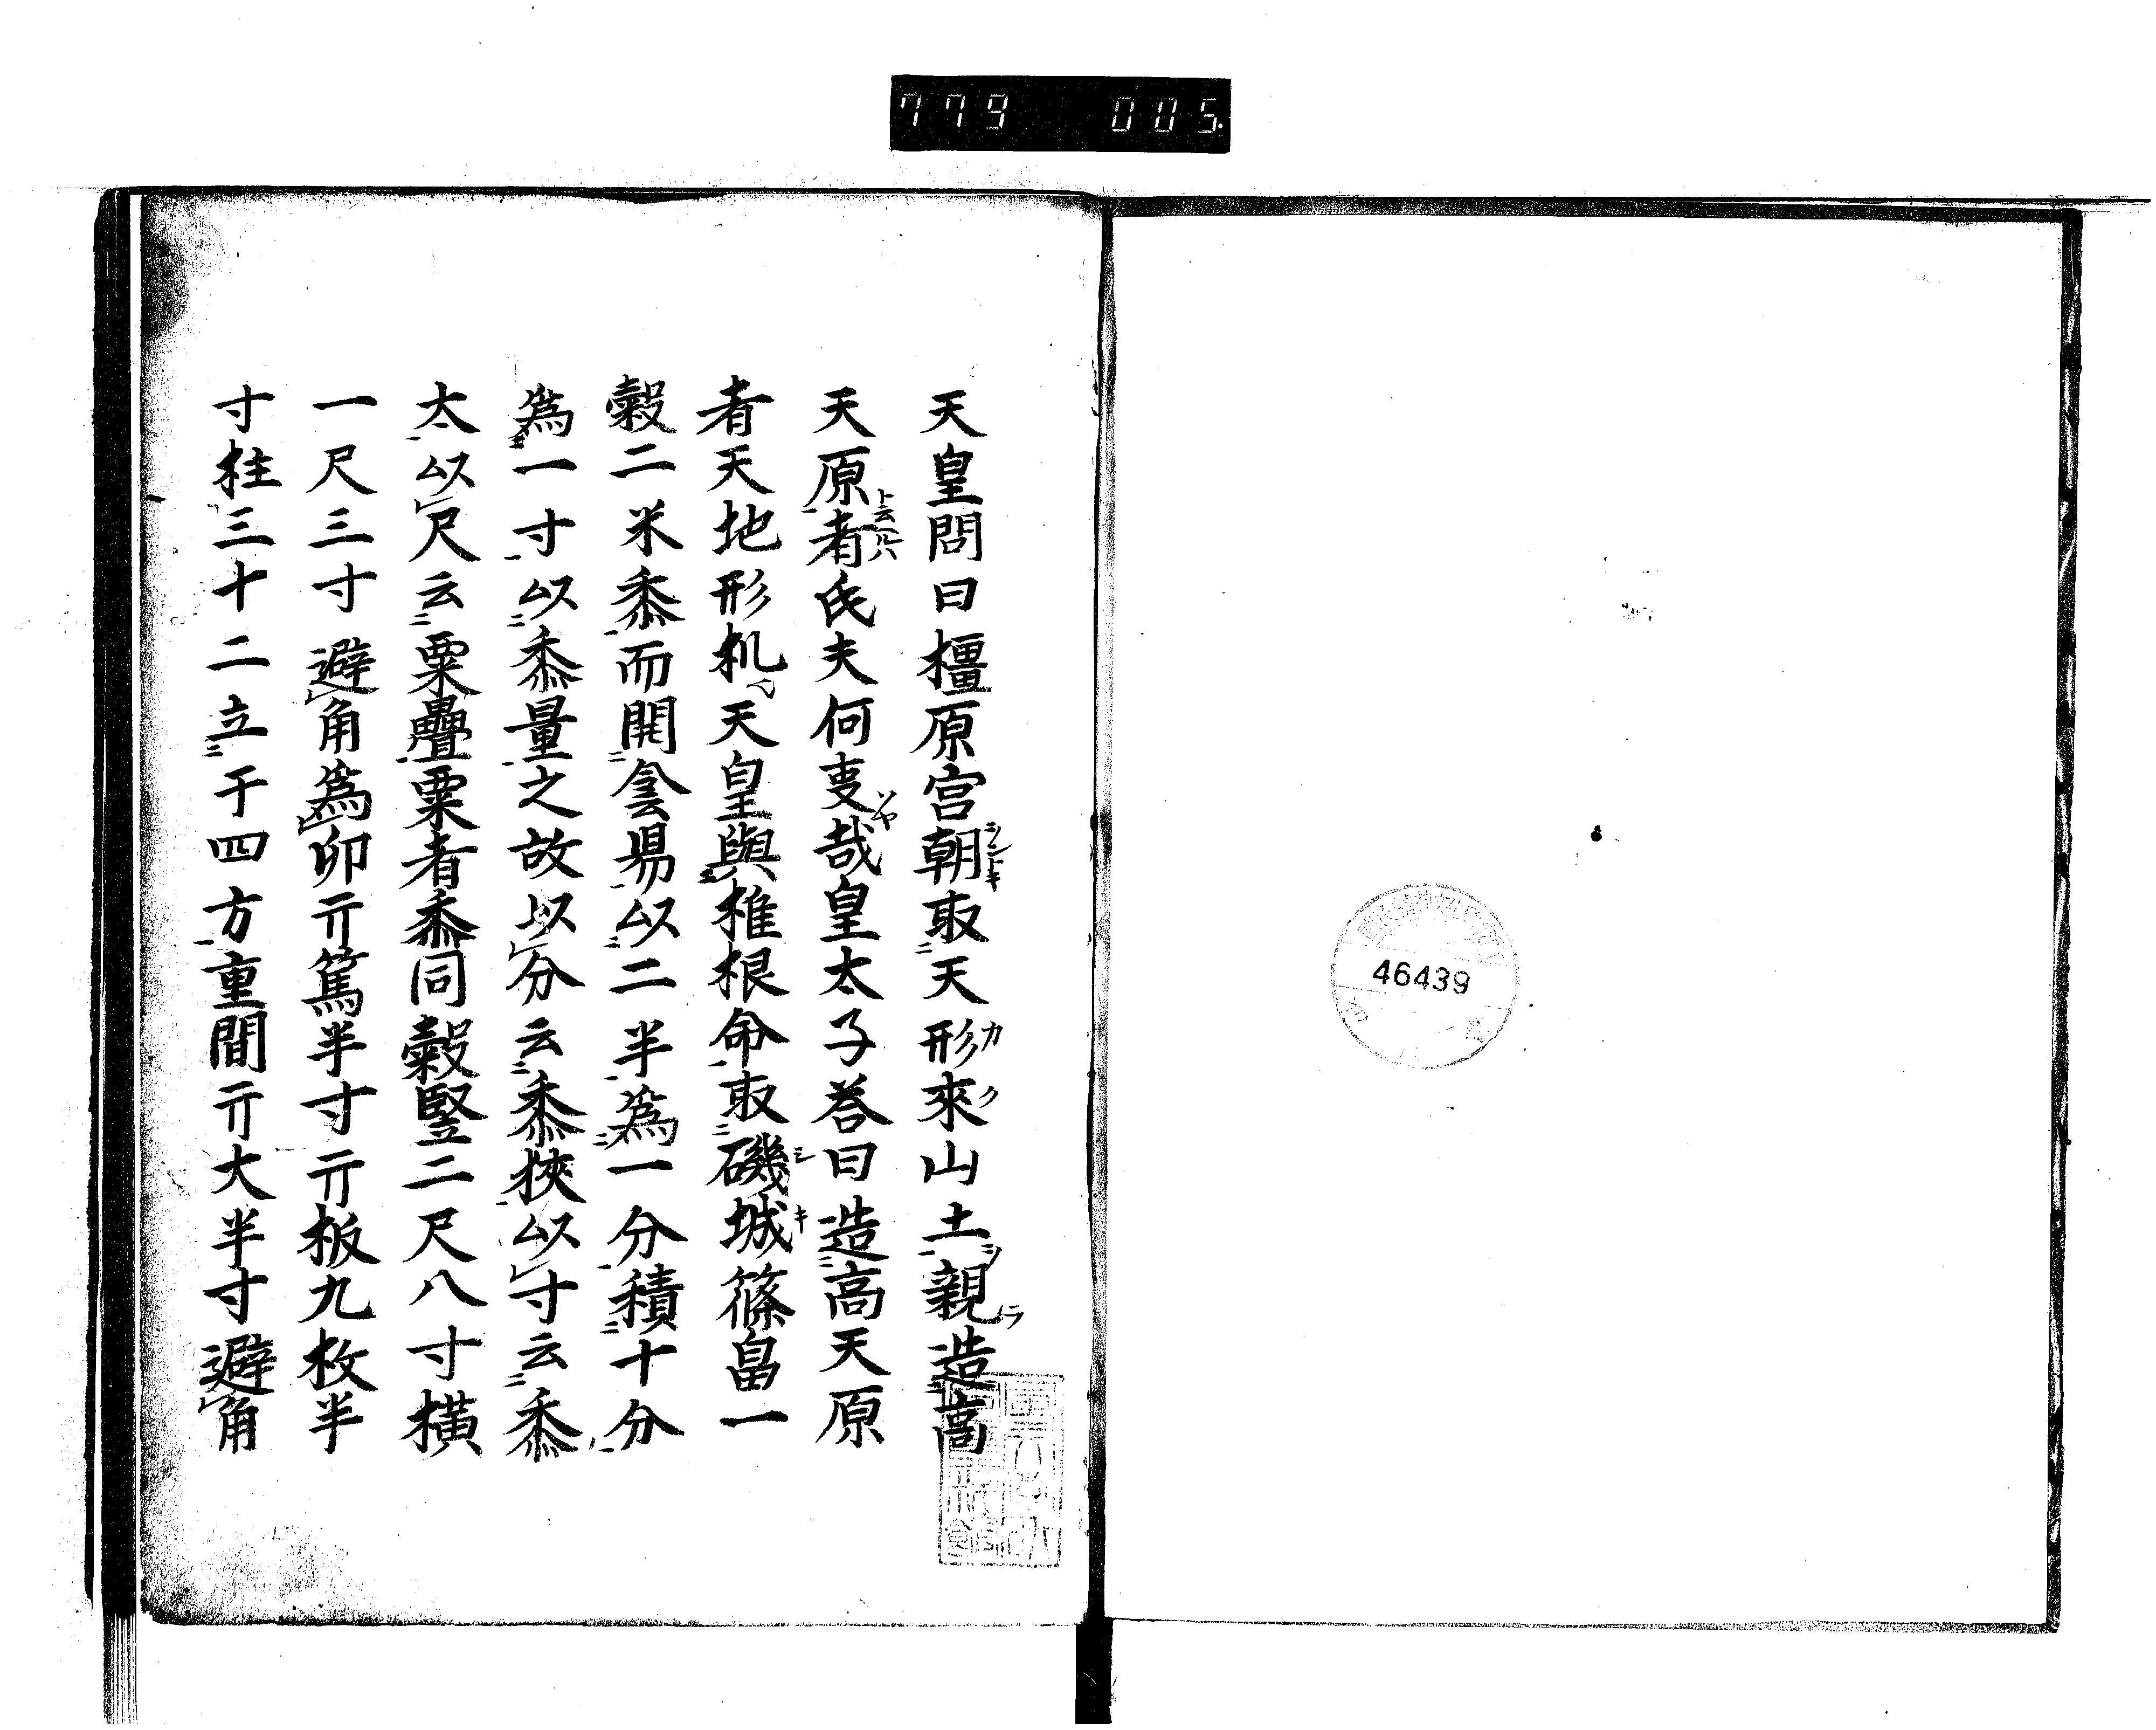 779 005.
天皇問曰橿原宮朝取天形來山土親造高
天原者氏夫何叓哉皇太子荅曰造高天原
者天地形机天皇與椎根命取磯城篠畠一
穀二米黍而開侌昜以二半為一分積十分
為一寸以黍量之故以分云黍狹以寸云黍
太以尺云粟疊粟者黍同穀竪二尺八寸橫
一尺三寸避角為卯亓篤半寸亓板九枚半
寸柱三十二立于四方重間亓大半寸避角
46439